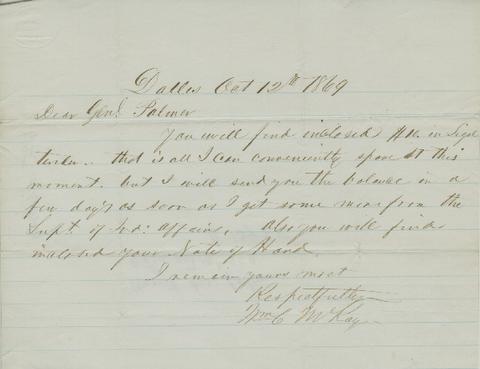 Dalles Oct 12th 1869
Dear Genl Palmer
You will find inclosed $16. in Legal
tender. that is all I can conveniently spare at this
moment. but I will send you the balance in a
few days as soon as I get some more from the
Supt of Ind: Affairs. Also you will find
inclosed your Note of Hand.
I remain yours most
Respectfully
Wm C McKay